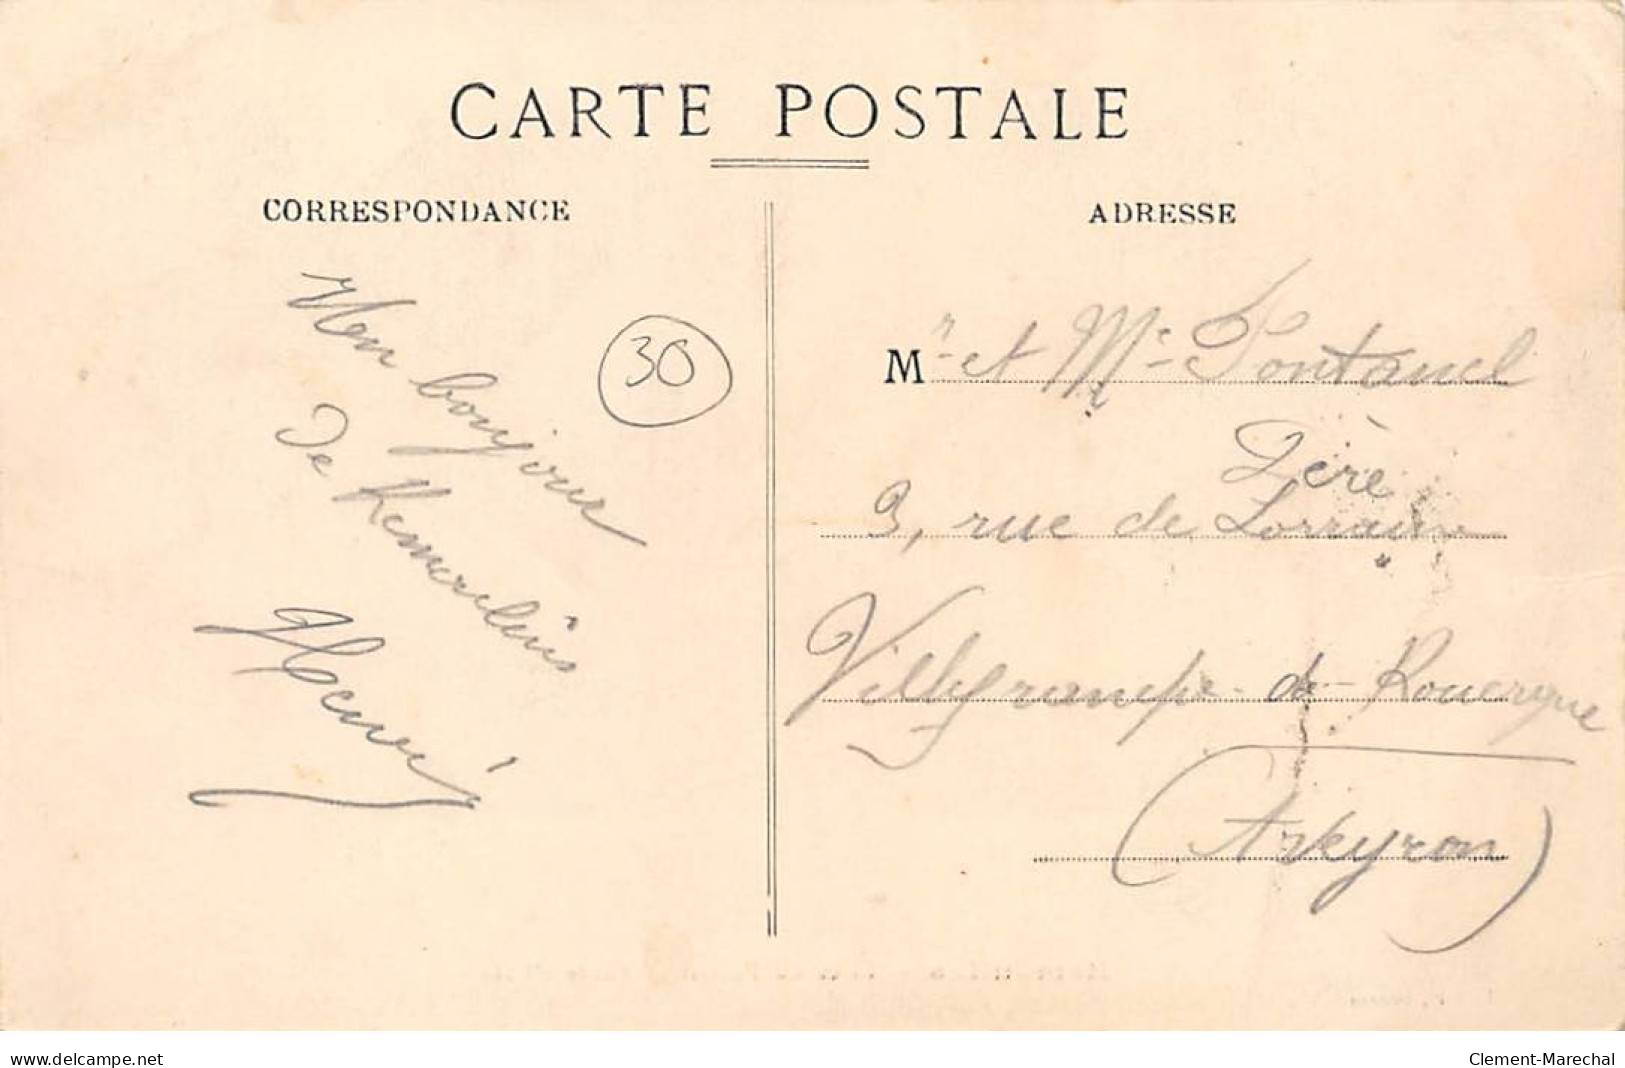 CARTE POSTALE
CORRESPONDANCE
ADRESSE
Mon bonjour
de Remoulins
30
M r et Me Fontanel
Père
3, rue de Lorraine
Villefranche-de-Rouergue
(Aveyron)
www.delcampe.net
Clement-Marechal